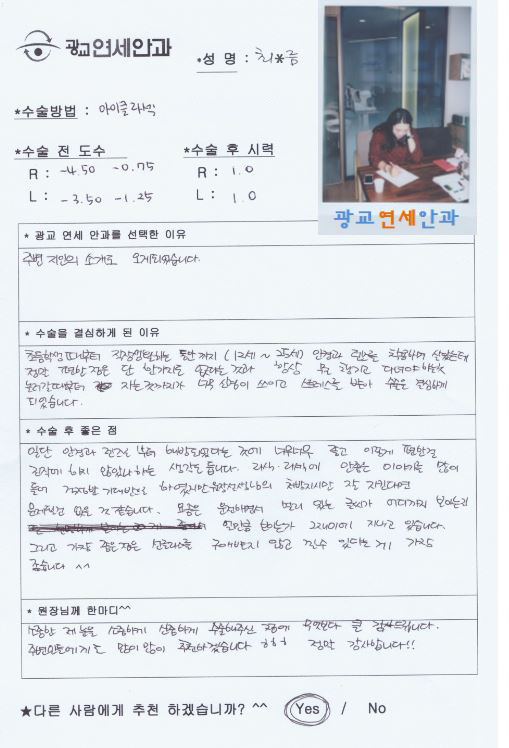 광교연세안과
*성 명 : 최*름
*수술방법 : 아이클라식
*수술 전 도수
*수술 후 시력
R : -4.50 -0.75
R : 1.0
L : -3.50 -1.25
L : 1.0
광교연세안과
* 광교 연세 안과를 선택한 이유
주변 지인의 소개로 오게되었습니다.
* 수술을 결심하게 된 이유
초등학생때부터 직장생활하는 동안까지 (12세 ~ 25세) 안경과 렌즈를 착용하며 살았는데
정말 편한점은 단 한가지도 없다는 것과 항상 챙기고 다녀야 하고
놀러갈때부터 자는것까지가 너무 신경이 쓰이고 스트레스를 받아 수술을 결심하게
되었습니다.
* 수술 후 좋은 점
일단 안경과 렌즈로 부터 해방되었다는 것에 너무너무 좋고 이렇게 편한걸
진작에 하지 않았나하는 생각도 듭니다. 라식·라섹에 안좋은 이야기를 많이
들어 걱정반 기대반으로 하였지만 원장선생님의 처방지시만 잘 지킨다면
문제될건 없을 것 같습니다. 요즘은 운전하면서 멀리 있는 글씨가 어디까지 보이는지
안보이는가 그재미에 지내고 있습니다.
그리고 가장 좋은점은 선글라스를 구애받지 않고 낄수 있다는게 가장
좋습니다 ^^
* 원장님께 한마디^^
소중한 제 눈을 신중하게 신중하게 수술해주신 점에 무엇보다 큰 감사드립니다.
주변인들에게도 많이많이 추천하겠습니다 ㅎㅎ 정말 감사합니다!!
★다른 사람에게 추천 하겠습니까? ^^ Yes / No